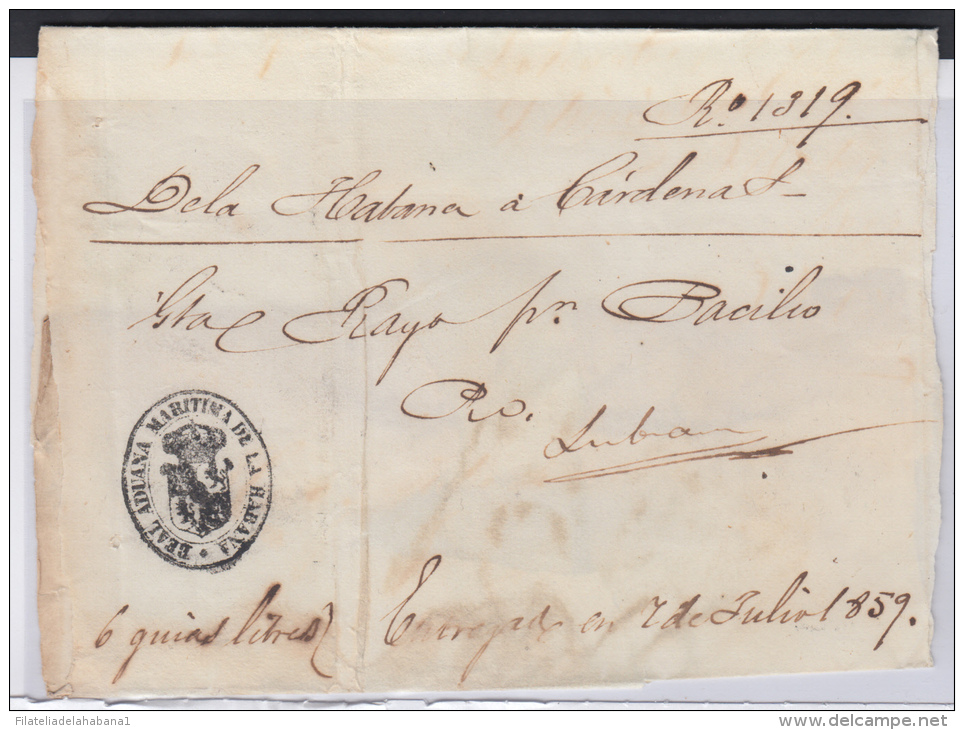 Ro. 1319.
Dela Habana à Cárdenas
Gta Rayo pn. Bacilio
Ro.
REAL ADUANA MARITIMA DE LA HABANA
6 guias libres
Entregada en 7 de Julio 1859.
Filateliadelahabana1
www.delcampe.net